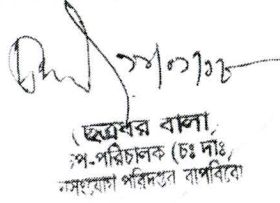 (ছত্রধর বালা)
উপ-পরিচালক (চঃ দাঃ)
জনসংযোগ পরিদপ্তর বাপবিবো